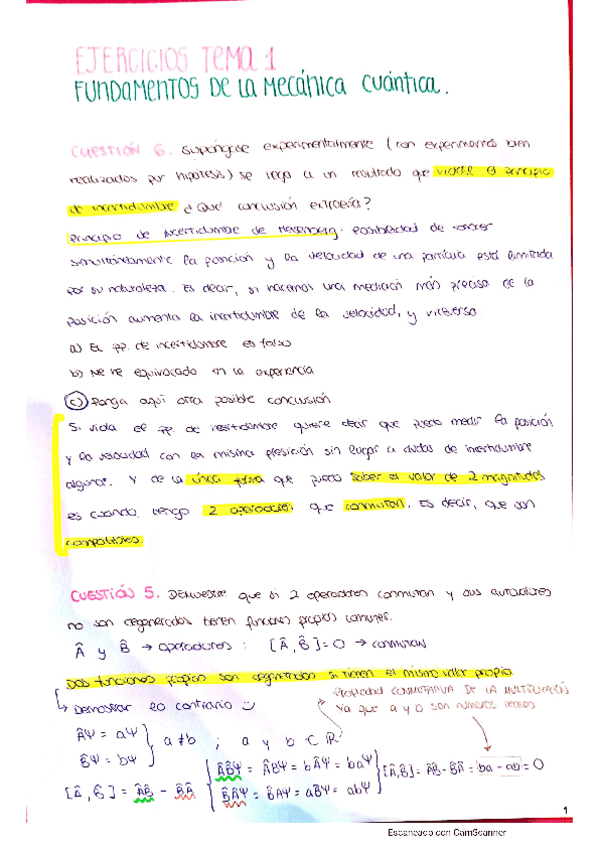 EJERCICIOS TEMA 1
FUNDAMENTOS DE LA MECÁNICA CUÁNTICA.
CUESTIÓN 6. Supóngase experimentalmente (con experimentos bien
realizados por hipótesis) se llega a un resultado que viole el principio
de incertidumbre ¿Qué conclusión extraería?
Principio de incertidumbre de Heisenberg. Posibilidad de conocer
simultáneamente la posición y la velocidad de una partícula está limitada
por su naturaleza. Es decir, si hacemos una medición más precisa de la
posición aumenta la incertidumbre de la velocidad, y viceversa
a) El pp. de incertidumbre es falso
b) Me he equivocado en la experiencia
c) Ponga aquí otra posible conclusión
Si viola el pp. de incertidumbre quiere decir que puedo medir la posición
y la velocidad con la misma presición sin lugar a dudas de incertidumbre
alguna. Y de la única forma que puedo saber el valor de 2 magnitudes
es cuando tengo 2 operadores que conmutan. Es decir, que son
compatibles.
CUESTIÓN 5. Demuestre que si 2 operadores conmutan y sus autovalores
no son degenerados tienen funciones propias comunes.
Â y B̂ → operadores : [Â,B̂]=0 → conmutan
Dos funciones propias son degeneradas si tienen el mismo valor propio
↳ Demostrar lo contrario
Propiedad CONMUTATIVA DE LA MULTIPLICACIÓN
ya que a y b son números reales
ÂΨ = aΨ
B̂Ψ = bΨ
a≠b ; a y b ⊂ ℝ
[Â,B̂] = ÂB̂ - B̂Â
ÂB̂Ψ = ÂB̂Ψ = bÂΨ = baΨ
B̂ÂΨ = B̂ÂΨ = aB̂Ψ = abΨ
[Â,B̂] = ÂB̂ - B̂Â = ba - ab = 0
1
Escaneado con CamScanner